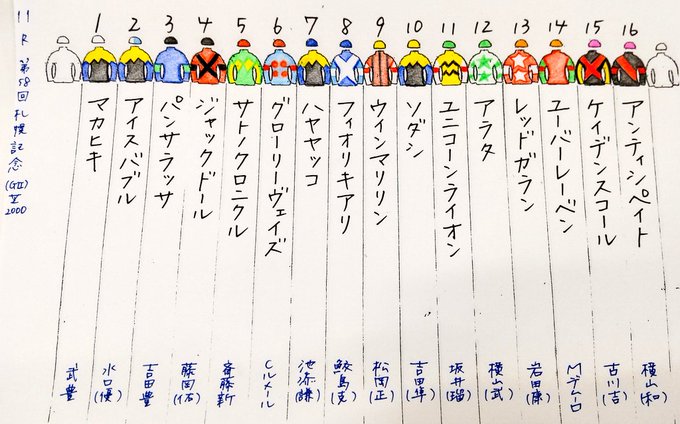 11R 第58回札幌記念(GII)芝2000
1 2 3 4 5 6 7 8 9 10 11 12 13 14 15 16
マカヒキ
アイスバブル
パンサラッサ
ジャックドール
サトノクロニクル
グローリーヴェイズ
ハヤヤッコ
フィオリキアリ
ウインマリリン
ソダシ
ユニコーンライオン
アラタ
レッドガラン
ユーバーレーベン
ケイデンスコール
アンティシペイト
武豊
水口(優)
吉田豊
藤岡(佑)
斎藤新
Cルメール
池添(謙)
鮫島(克)
松岡(正)
吉田(隼)
坂井(瑠)
横山(武)
岩田(康)
Mデムーロ
古川(吉)
横山(和)